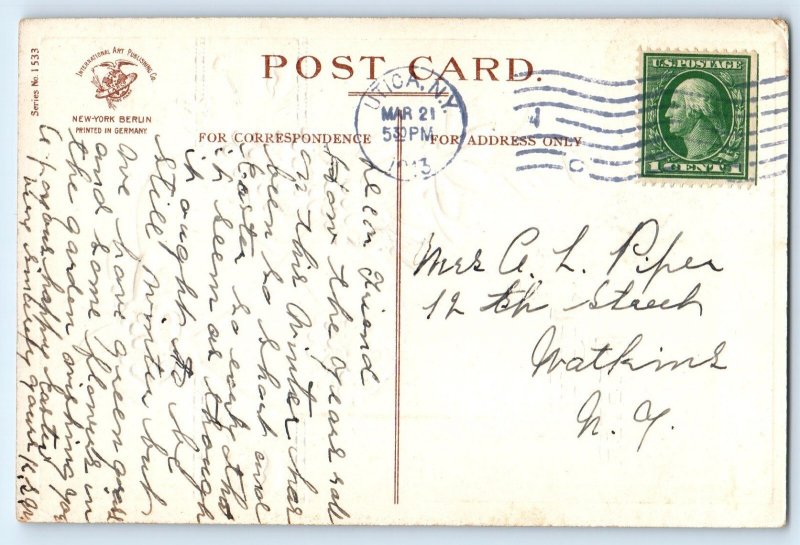 POST CARD.
Series No. 1533
INTERNATIONAL ART PUBLISHING CO.
NEW-YORK BERLIN
PRINTED IN GERMANY
UTICA, N.Y.
MAR 21
530PM
1913
U.S. POSTAGE
1 CENT 1
FOR CORRESPONDENCE
FOR ADDRESS ONLY
Dear Friend
How the years roll
on this Winter has
been so short and
Easter so early tho
it seem as though
it ought to be
still Winter but
we have green grass
and some flowers in
the garden wishing you
a joyous happy Easter
very sincerely yours
Mrs A. L. Piper
12 th Street
Watkins
N. Y.